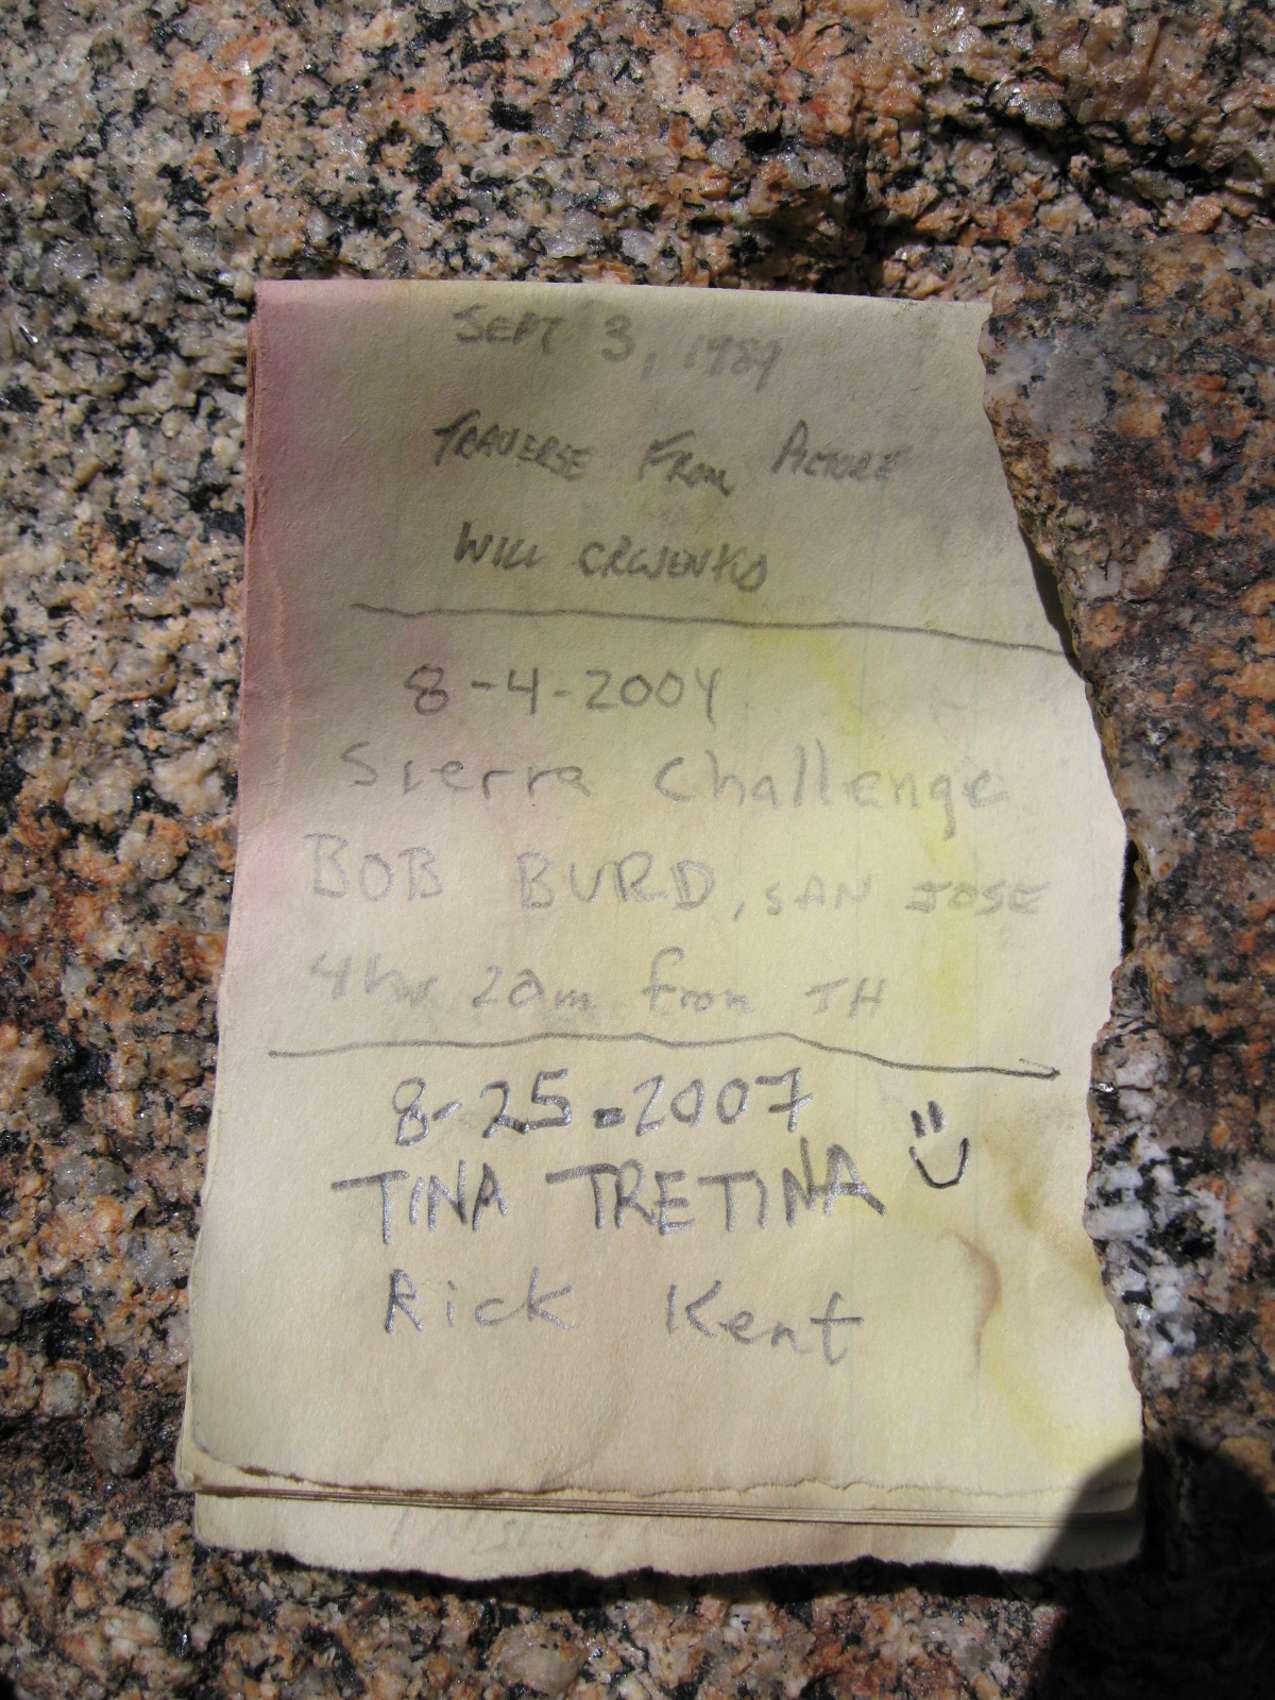 SEPT 3, 1989
TRAVERSE FROM PICTURE
WILL
8-4-2004
Sierra Challenge
BOB BURD, SAN JOSE
4hr 20m from TH
8-25-2007
TINA TRETINA
Rick Kent